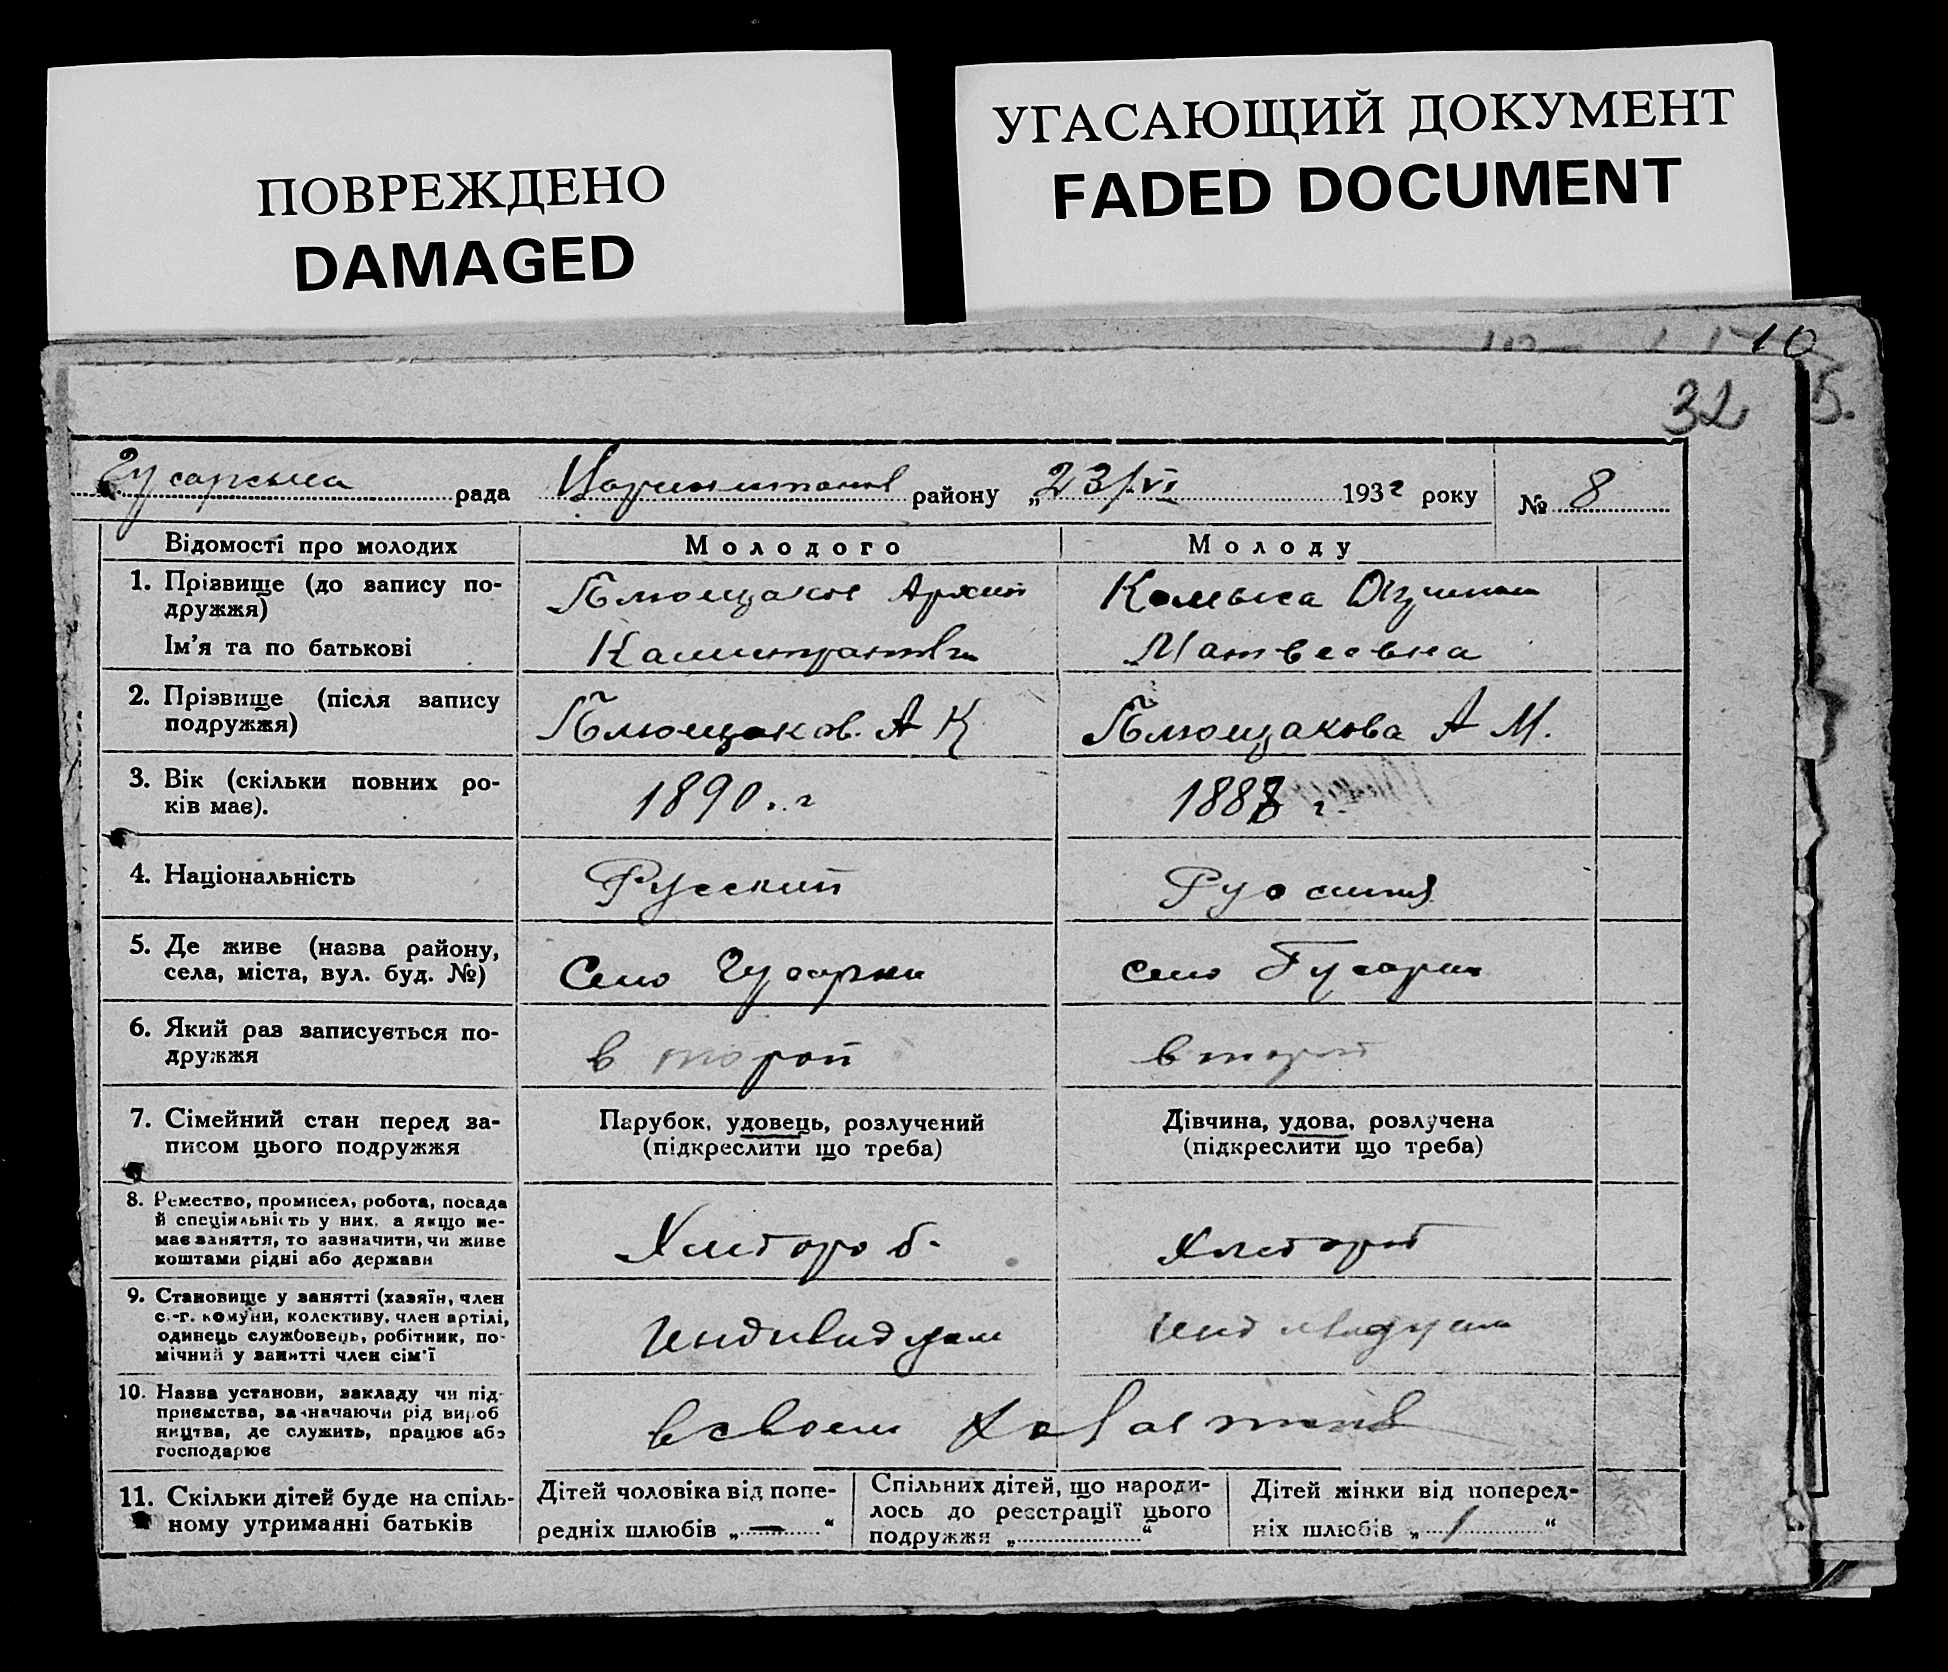 ПОВРЕЖДЕНО
DAMAGED
УГАСАЮЩИЙ ДОКУМЕНТ
FADED DOCUMENT
10
32
5.
Гусарська рада района „23/VI 1932 року № 8
Відомості про молодих Молодого Молоду
1. Прізвище (до запису по-
дружжя)
Ім'я та по батькові
Плющаков Архип
Калистратов
Матвеевна
2. Прізвище (після запису
подружжя)
Плющаков. А К
Плющакова А М.
3. Вік (скільки повних ро-
ків має).
1890. г
1888 г.
4. Національність
Русский
5. Де живе (назва району,
села, міста, вул. буд. №)
Село Гусарки
село Гусарки
6. Який раз записується по-
дружжя
второй
второй
7. Сімейний стан перед за-
писом цього подружжя
Парубок, удовець, розлучений
(підкреслити що треба)
Дівчина, удова, розлучена
(підкреслити що треба)
8. Ремество, промисел, робота, посада
й спеціяльність у них, а якщо не-
має заняття, то зазначити, чи живе
коштами рідні або держави
Хлебороб.
Хлебороб
9. Становище у занятті (хазяїн, член
с.-г. комуни, колективу, член артілі,
одинець службовець, робітник, по-
мічний у занятті член сім'ї
Индивидуал
Индивидуал
10. Назва установи, закладу чи під-
приємства, зазначаючи рід вироб
ництва, де служить, працює або
господарює
в своем
11. Скільки дітей буде на спіль-
ному утриманні батьків
Дітей чоловіка від попе-
редніх шлюбів „—“
Спільних дітей, що народи-
лось до реєстрації цього
подружжя „ “
Дітей жінки від поперед-
ніх шлюбів „1“